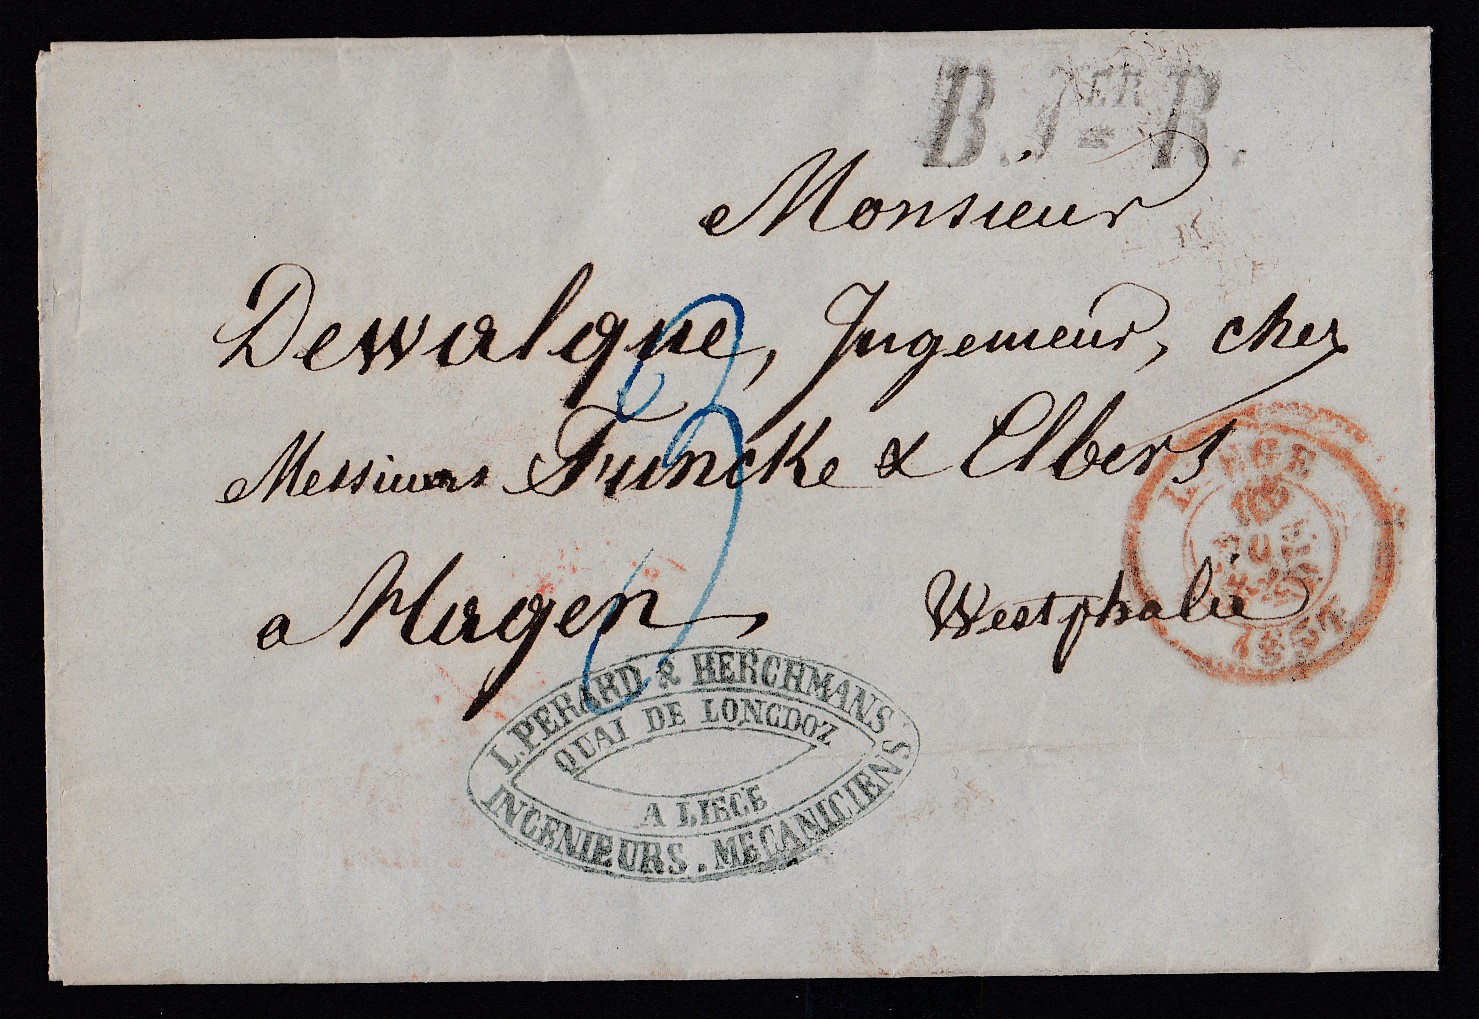 B. 1ER R.
Monsieur
Dewalque, Ingenieur, chez
Messieurs Funcke & Elbers
a Hagen, Westphalie
3
LIEGE
1857
L. PERARD & HERCHMANS
QUAI DE LONGDOZ
A LIEGE
INGENIEURS. MECANICIENS